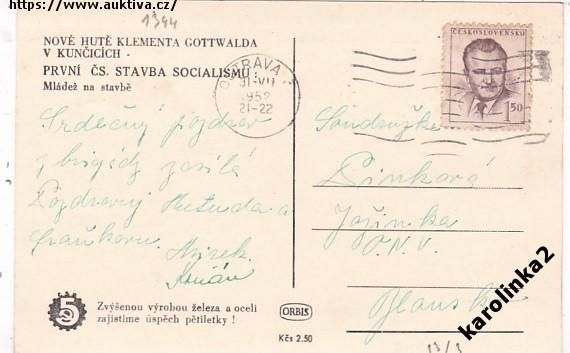 https://www.auktiva.cz/
1344
NOVÉ HUTĚ KLEMENTA GOTTWALDA
V KUNČICÍCH -
PRVNÍ ČS. STAVBA SOCIALISMU
Mládež na stavbě
OSTRAVA
31.VII
1952
21-22
ČESKOSLOVENSKO
1.50
Srdečný pozdrav
z brigády zasílá
Pozdravuj
a
Mirek
Soudružka
Zinková
Jožinka
O.N.V.
Blansko
5
Zvýšenou výrobou železa a oceli
zajistíme úspěch pětiletky !
ORBIS
Kčs 2.50
karolinka2